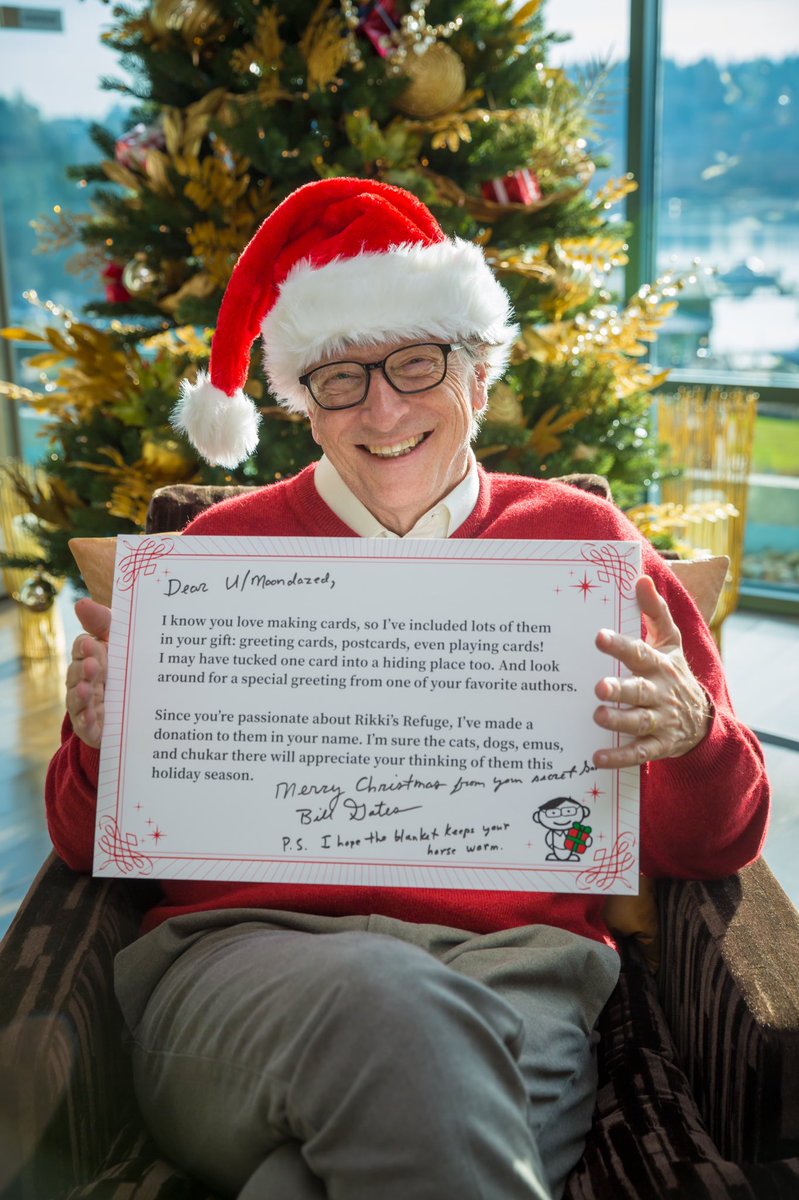 Dear U/Moondazed,
I know you love making cards, so I've included lots of them
in your gift: greeting cards, postcards, even playing cards!
I may have tucked one card into a hiding place too. And look
around for a special greeting from one of your favorite authors.
Since you're passionate about Rikki's Refuge, I've made a
donation to them in your name. I'm sure the cats, dogs, emus,
and chukar there will appreciate your thinking of them this
holiday season.
Merry Christmas from your secret
Bill Gates
P.S. I hope the blanket keeps your
horse warm.